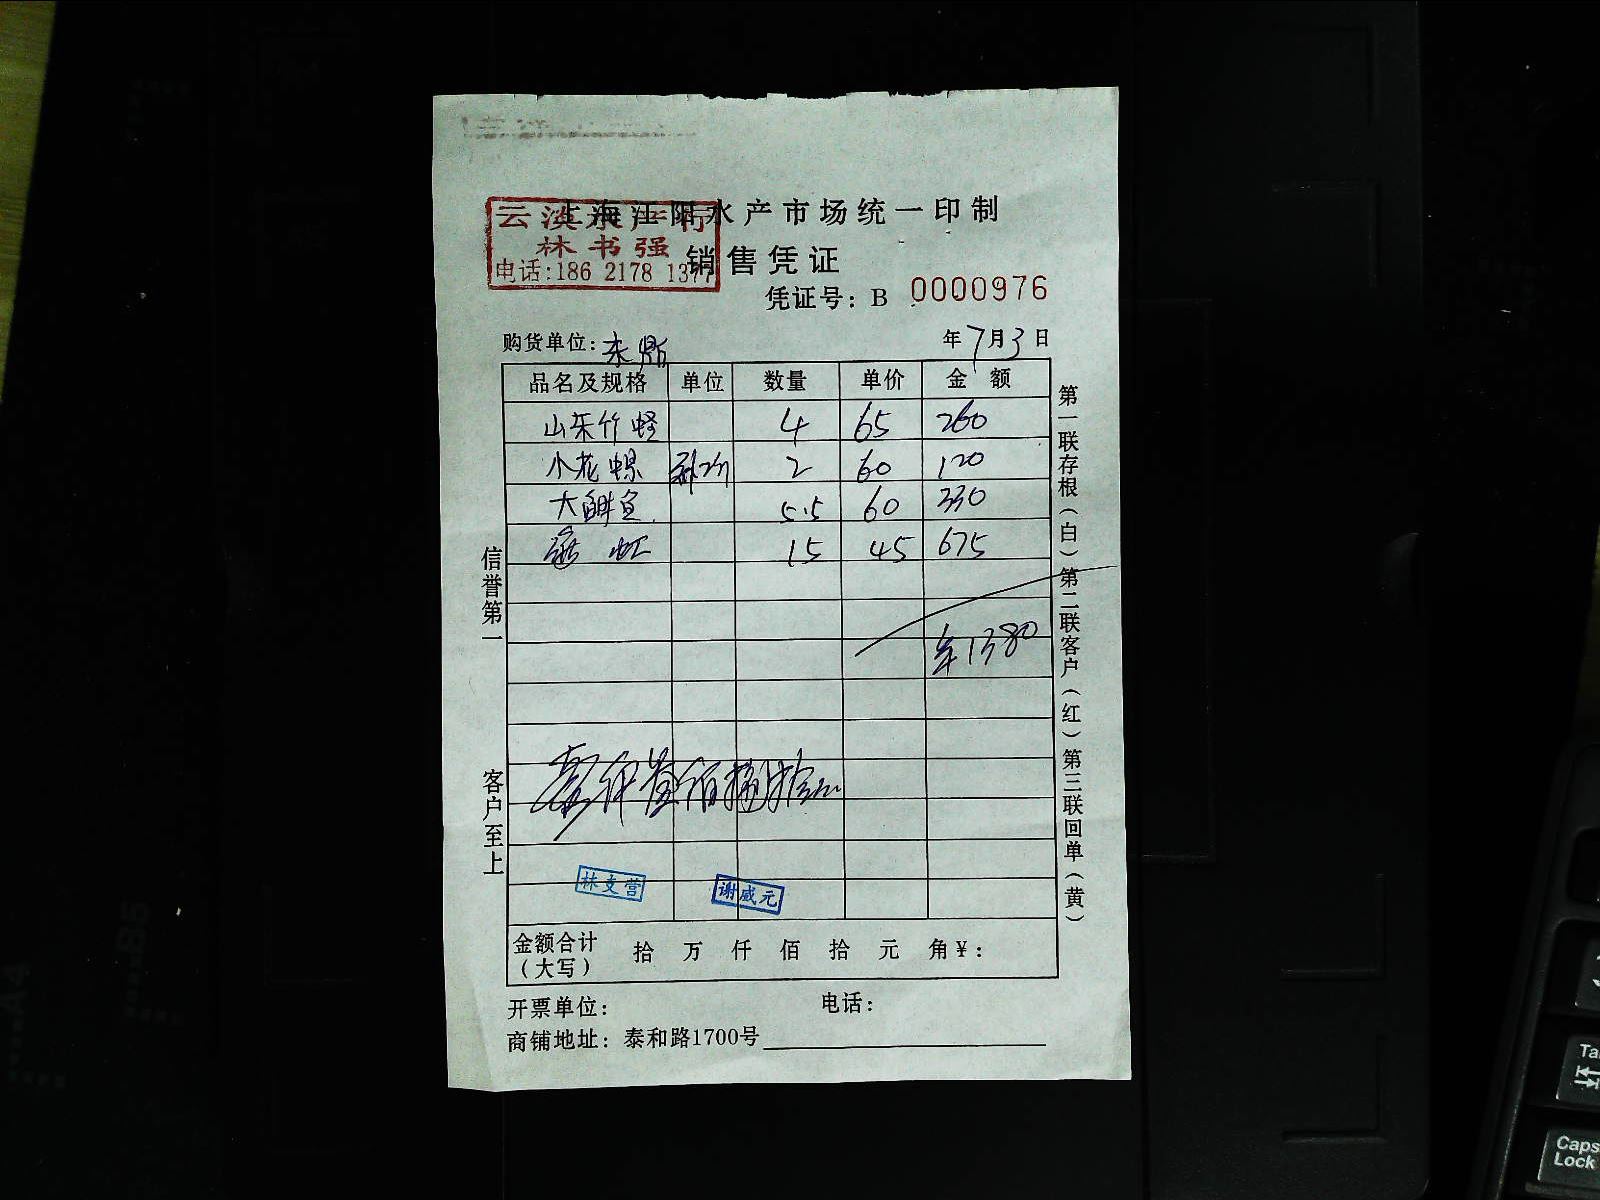 上海江阳水产市场统一印制
云淡水产行
林书强
电话:186 2178 1377
销售凭证
凭证号：B 0000976
购货单位：东鼎
年7月3日
品名及规格 单位 数量 单价 金额
山东竹蛏 4 65 260
小花螺 2 60 120
大鲜鱼 5.5 60 330
15 45 675
¥1380
壹仟叁佰捌拾元
林支营 谢威元
金额合计（大写） 拾 万 仟 佰 拾 元 角 ¥：
开票单位： 电话：
商铺地址：泰和路1700号
信誉第一
客户至上
第一联存根（白）第二联客户（红）第三联回单（黄）
Caps Lock